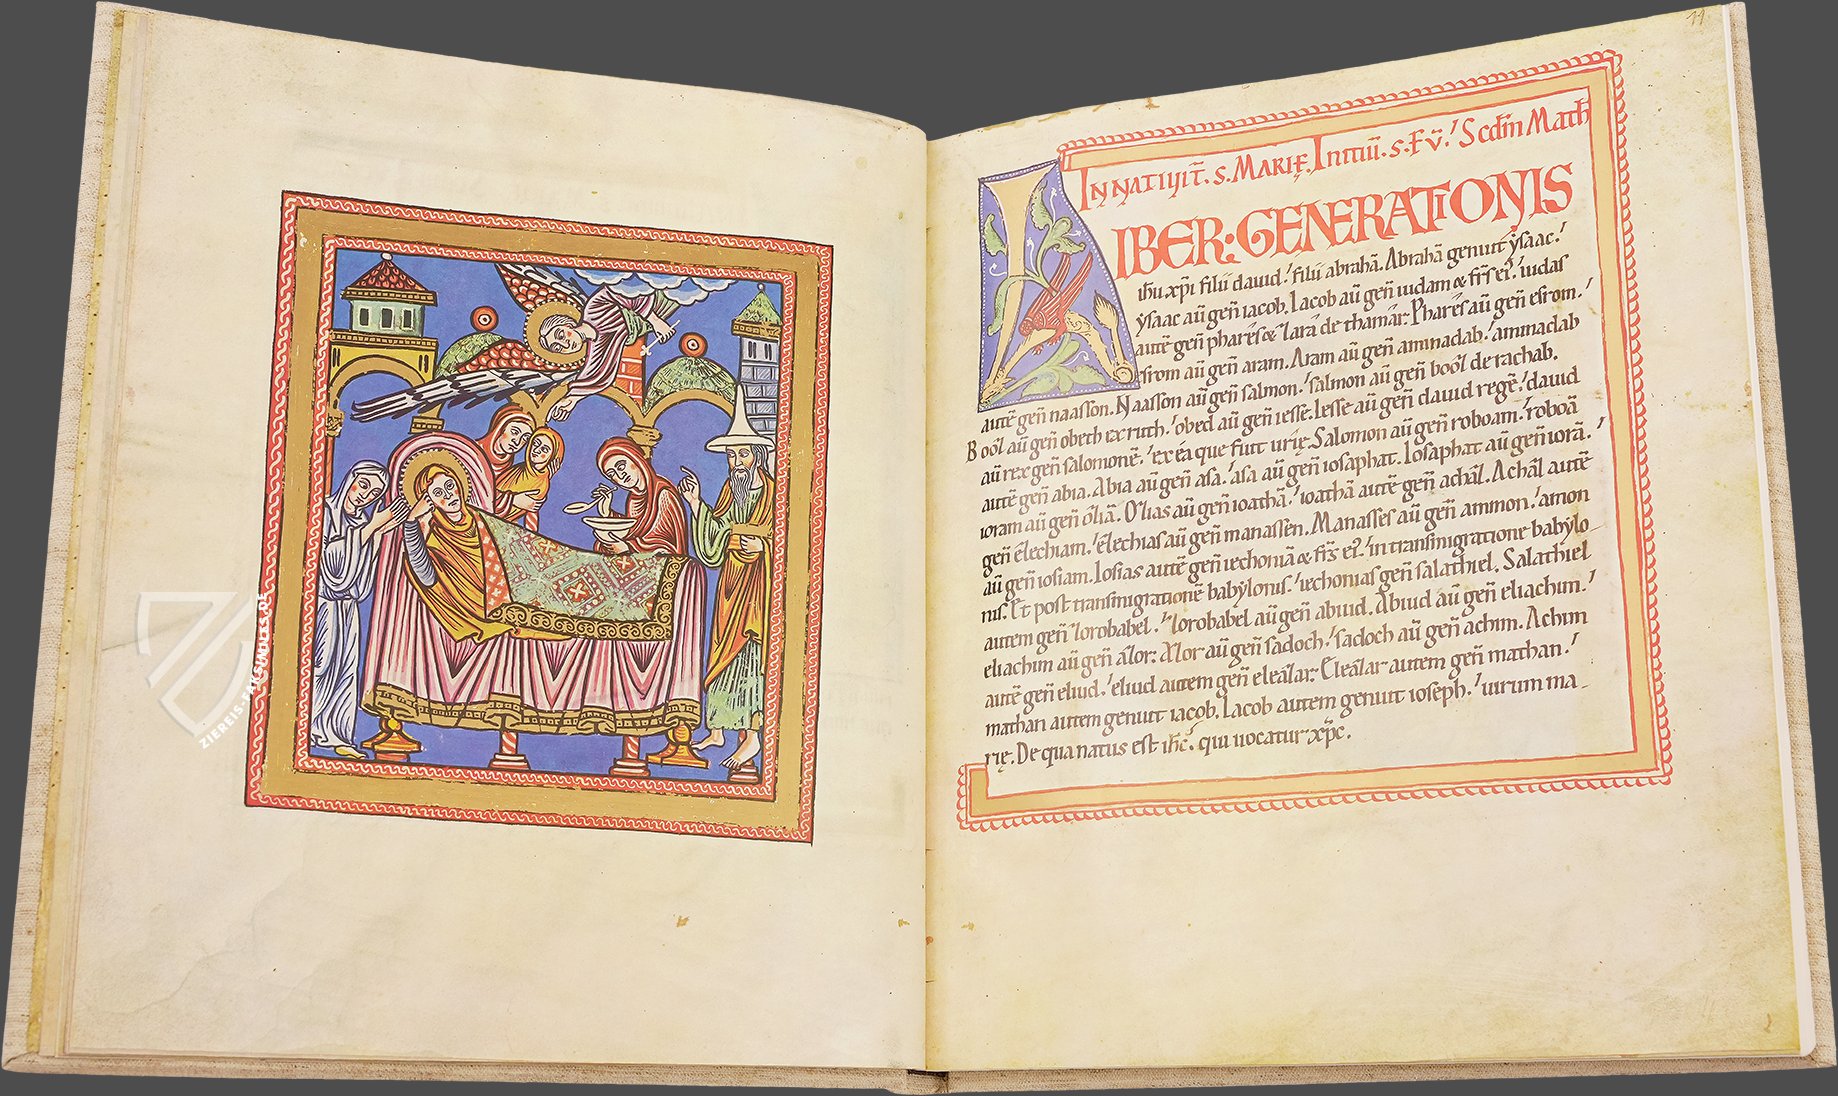 ZIEREIS-FAKSIMILES.DE
11
IN NATIVIT̄. S. MARIĘ. INITIŪ. S. EV̄. Scdm̄ Math̄
LIBER: GENERATIONIS
ih̄u xp̄i filii dauid. filii abrahā. Abrahā genuit ẏsaac.
ẏsaac aū gen̄ iacob. Iacob aū gen̄ iudam & fr̄s ei'. iudas
autē gen̄ pharēs & zarā de thamar. Pharēs aū gen̄ esrom.
esrom aū gen̄ aram. Aram aū gen̄ aminadab. aminadab
autē gen̄ naasson. Naasson aū gen̄ salmon. salmon aū gen̄ booz de rachab.
Booz aū gen̄ obeth ex ruth. obed aū gen̄ iesse. Iesse aū gen̄ dauid regē. dauid
aū rex gen̄ salomonē. ex ea que fuit urię. Salomon aū gen̄ roboam. roboā
autē gen̄ abia. Abia aū gen̄ asa. asa aū gen̄ iosaphat. Iosaphat aū gen̄ iorā.
ioram aū gen̄ oziā. Ozias aū gen̄ ioathā. ioathā autē gen̄ achaz. Achaz autē
gen̄ ezechiam. ezechias aū gen̄ manassen. Manasses aū gen̄ ammon. amon
aū gen̄ iosiam. Iosias autē gen̄ iechoniā & fr̄s ei'. in transmigratione babẏlo-
nis. Et post transmigrationē babẏlonis. iechonias gen̄ salathiel. Salathiel
autem gen̄ zorobabel. zorobabel aū gen̄ abiud. Abiud aū gen̄ eliachim.
eliachim aū gen̄ azor. Azor aū gen̄ sadoch. sadoch aū gen̄ achim. Achim
autē gen̄ eliud. eliud autem gen̄ eleazar. Eleazar autem gen̄ mathan.
mathan autem genuit iacob. Iacob autem genuit ioseph. uirum ma-
rię. De qua natus est ih̄c. qui uocatur xp̄c.